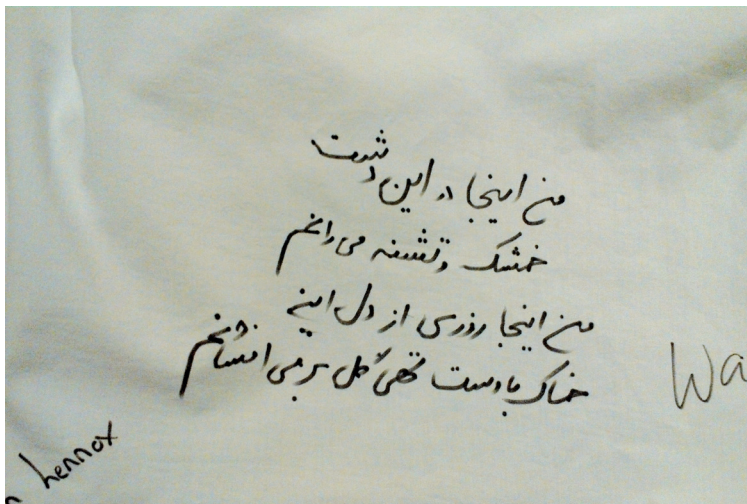 من اینجا در این دشت
خشک و تشنه می رانم
من اینجا روزی از دل این
خاک با دست تهی گل بر می افشانم
Wa
Lennox